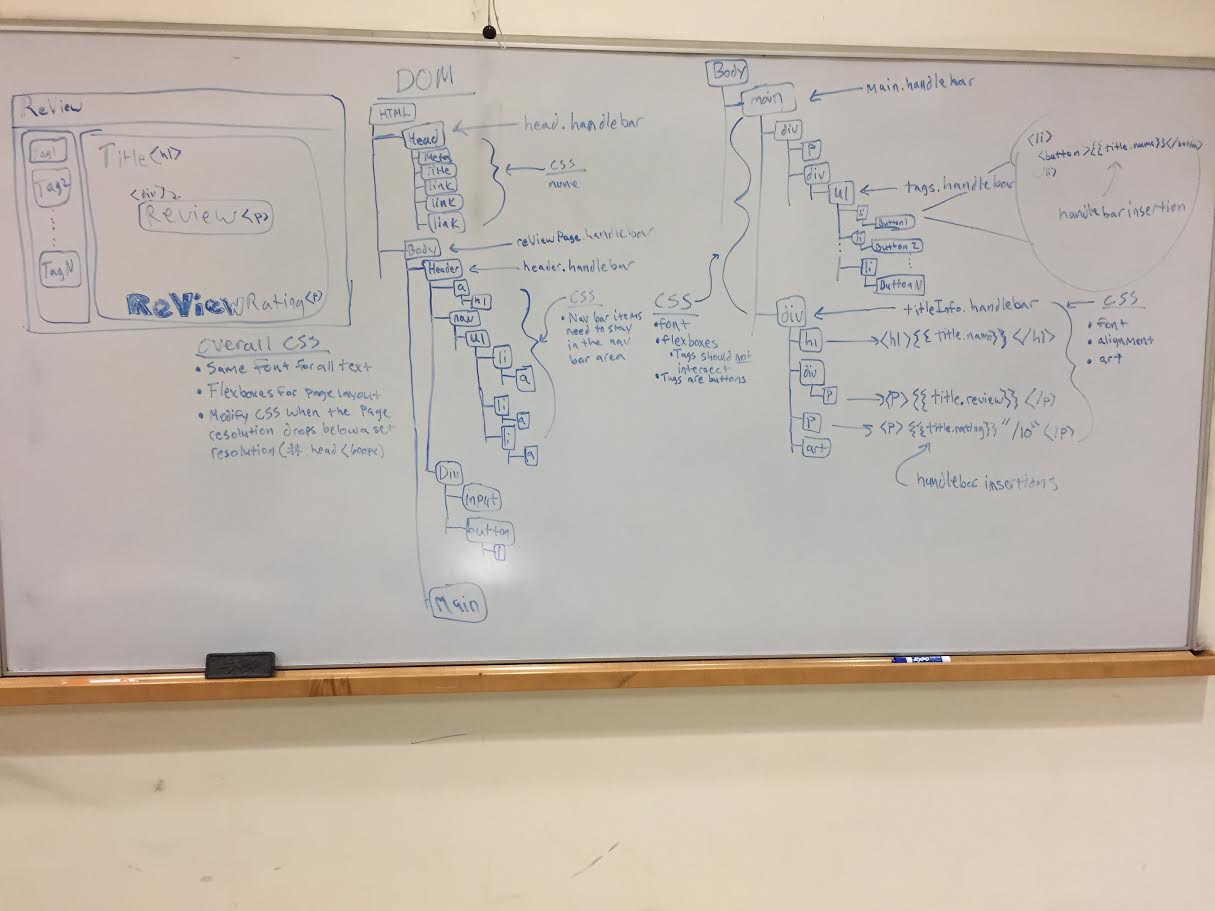 ReView
Tag1
Tag2
TagN
Title<h1>
<div>
Review<p>
ReView
Rating<p>
Overall CSS
• Same font for all text
• Flexboxes for page layout
• Modify CSS when the page
resolution drops below a set
resolution
DOM
HTML
Head
head.handlebar
Meta
Title
link
link
link
CSS
none
Body
reviewPage.handlebar
Header
header.handlebar
a
h1
nav
ul
li
a
li
a
li
a
CSS
• Nav bar items
need to stay
in the nav
bar area
Div
input
button
i
Main
Body
main
Main.handlebar
div
P
div
ul
tags.handlebar
li
Button1
li
Button 2
li
Button N
<li>
<button>{{title.name}}</button>
</li>
handlebar insertion
CSS
• font
• flexboxes
• Tags should not
intersect
• Tags are buttons
div
titleInfo.handlebar
h1
<h1>{{title.name}}</h1>
div
P
<p>{{title.review}}</p>
P
<p>{{title.rating}}"/10"</p>
art
handlebar insertions
CSS
• font
• alignment
• art
EXPO